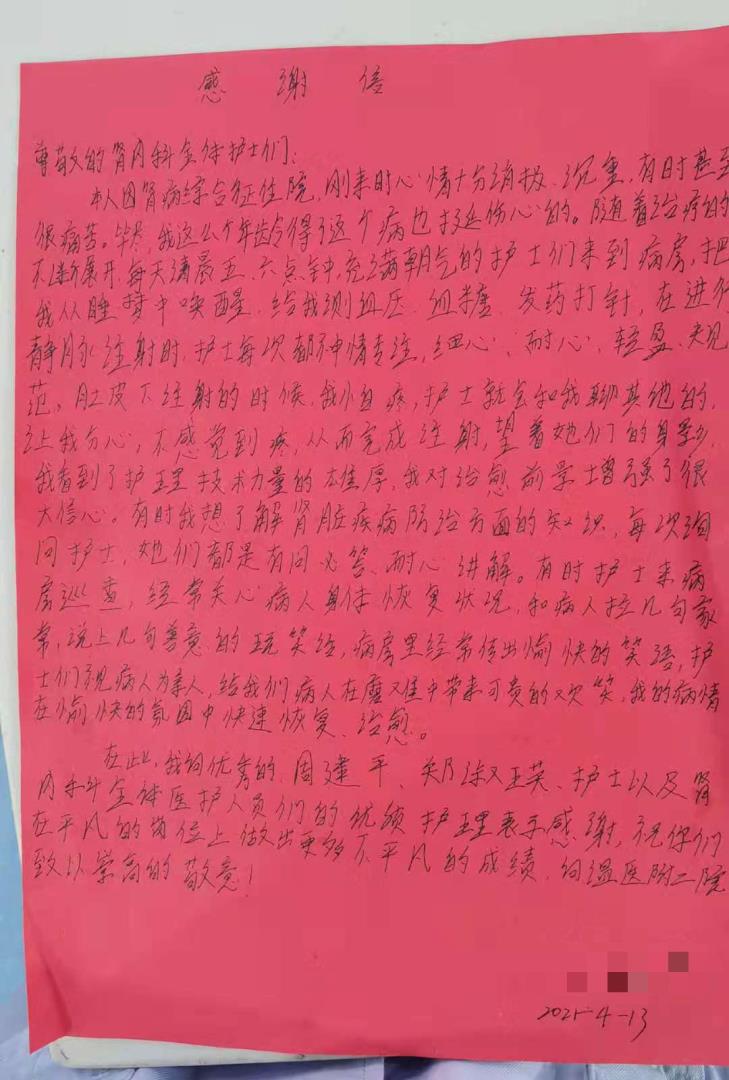 感谢信
尊敬的肾内科全体护士们:
本人因肾病综合征住院,刚来时心情十分消极、沉重,有时甚至
很痛苦。毕竟,我这么个年龄得了这个病也挺伤心的。随着治疗的
不断展开,每天清晨五、六点钟,充满朝气的护士们来到病房,把
我从睡梦中唤醒,给我测血压、血糖、发药打针,在进行
静脉注射时,护士每次都神情专注,细心、耐心、轻盈、规
范,肚皮下注射的时候,我怕疼,护士就会和我聊其他的,
让我分心,不感觉到疼,从而完成注射,望着她们的身影,
我看到了护理技术力量的雄厚,我对治愈前景增强了很
大信心。有时我想了解肾脏疾病防治方面的知识,每次询
问护士,她们都是有问必答、耐心讲解。有时护士来病
房巡查,经常关心病人身体恢复状况,和病人拉几句家
常,说上几句善意的玩笑话,病房里经常传出愉快的笑语,护
士们视病人为亲人,给我们病人在磨难中带来可贵的欢笑,我的病情
在愉快的氛围中快速恢复、治愈。
在此,我向优秀的周建平、郑双英、护士以及肾
内科全体医护人员们的优质护理表示感谢,祝你们
在平凡的岗位上做出更多不平凡的成绩,向温医附二院
致以崇高的敬意!
2021-4-13